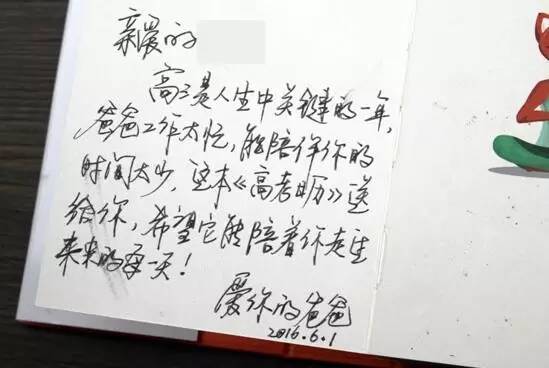 亲爱的
高三是人生中关键的一年,
爸爸工作太忙,能陪伴你的
时间太少,这本《高考日历》送
给你,希望它能陪着你走过
未来的每一天!
爱你的爸爸
2016.6.1